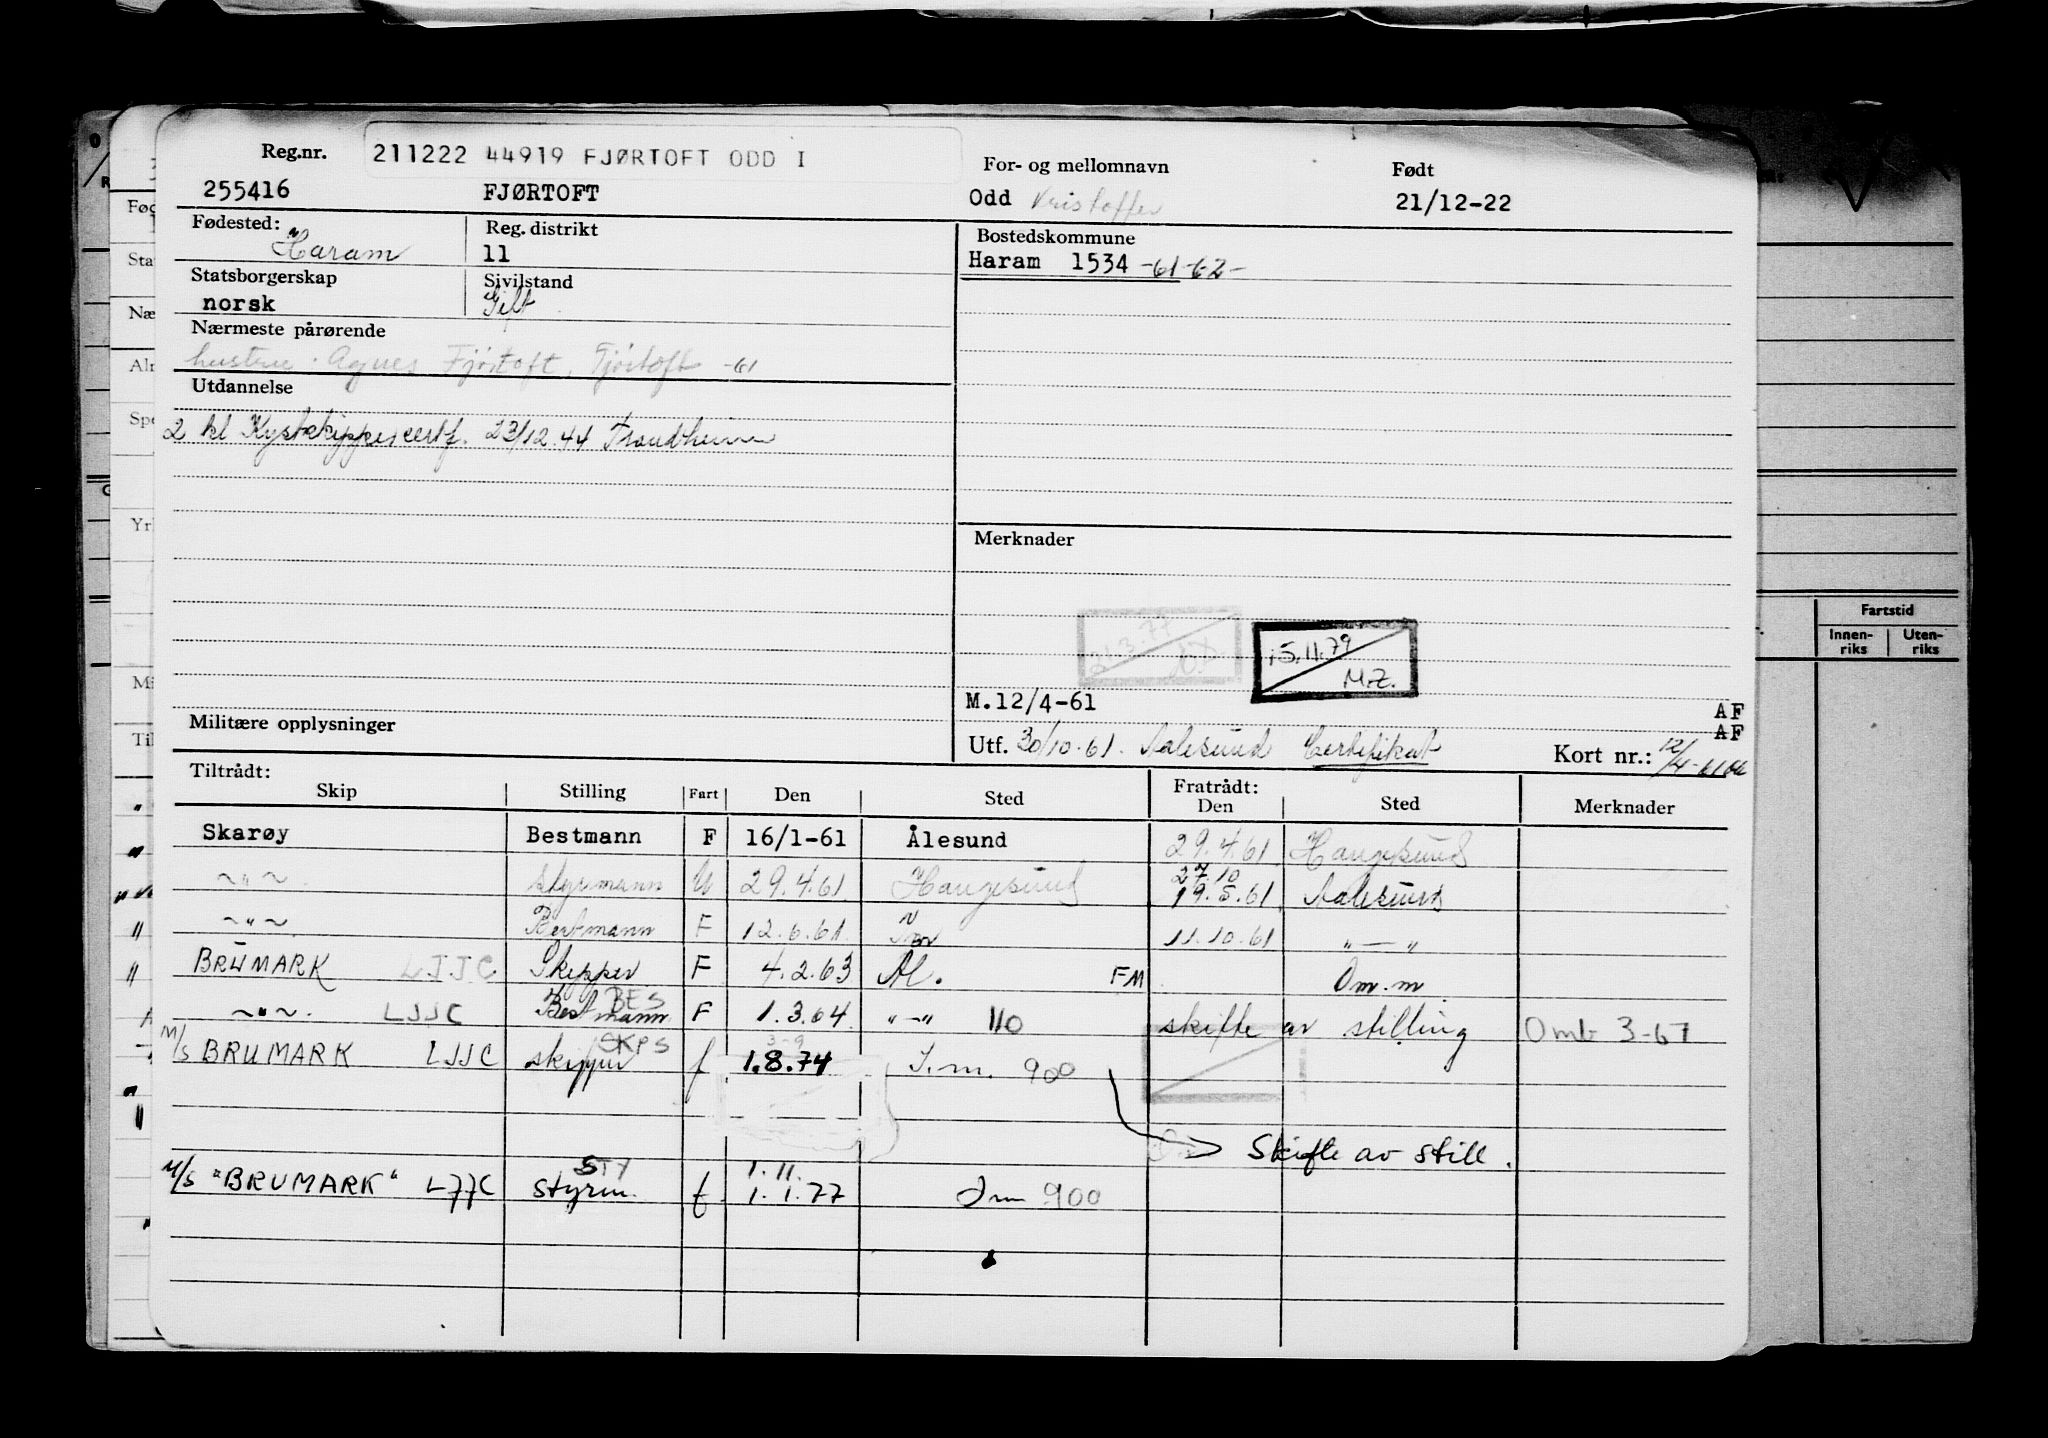 Reg.nr. 211222 44919 FJØRTOFT ODD I
For- og mellomnavn
Født
255416 FJØRTOFT
Odd Kristoffer
21/12-22
Fødested:
Haram
Reg. distrikt
11
Bostedskommune
Haram 1534 -61-62-
Statsborgerskap
norsk
Sivilstand
Gift
Nærmeste pårørende
hustru. Agnes Fjörtoft, Fjörtoft -61
Utdannelse
2 kl Kystskippercertf. 23/12.44 Trondheim
Merknader
21.3.77
15.11.79
M.Z.
M.12/4-61
AF
AF
Militære opplysninger
Utf. 30/10.61. Aalesund Certifikat
Kort nr.: 12/4-61
Tiltrådt:
Fratrådt:
Skip Stilling Fart Den Sted Den Sted Merknader
Skarøy Bestmann F 16/1-61 Ålesund 29.4.61 Haugesund
27.10
~"~ styrmann U 29.4.61. Haugesund 19.5.61 Aalesund
~"~ Bestmann F 12.6.61 11.10.61 "—"
BRUMARK LJJC Skipper F 4.2.63 Ål. FM Om.m
BES
~"~. LJJC Bestmann F 1.3.64. "-" 110 skifte av stilling Omb 3-67
SKPS 3-9
M/S BRUMARK LJJC skipper f 1.8.74 I.m. 900
Skifte av still.
STY 1.11.
M/S "BRUMARK" LJJC styrm. f 1.1.77 Im 900
Fartstid
Innen-riks
Uten-riks